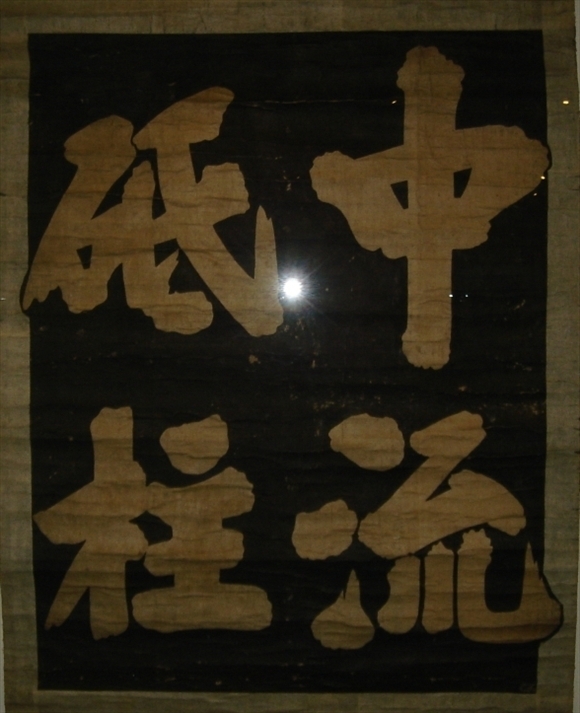 中流
砥柱